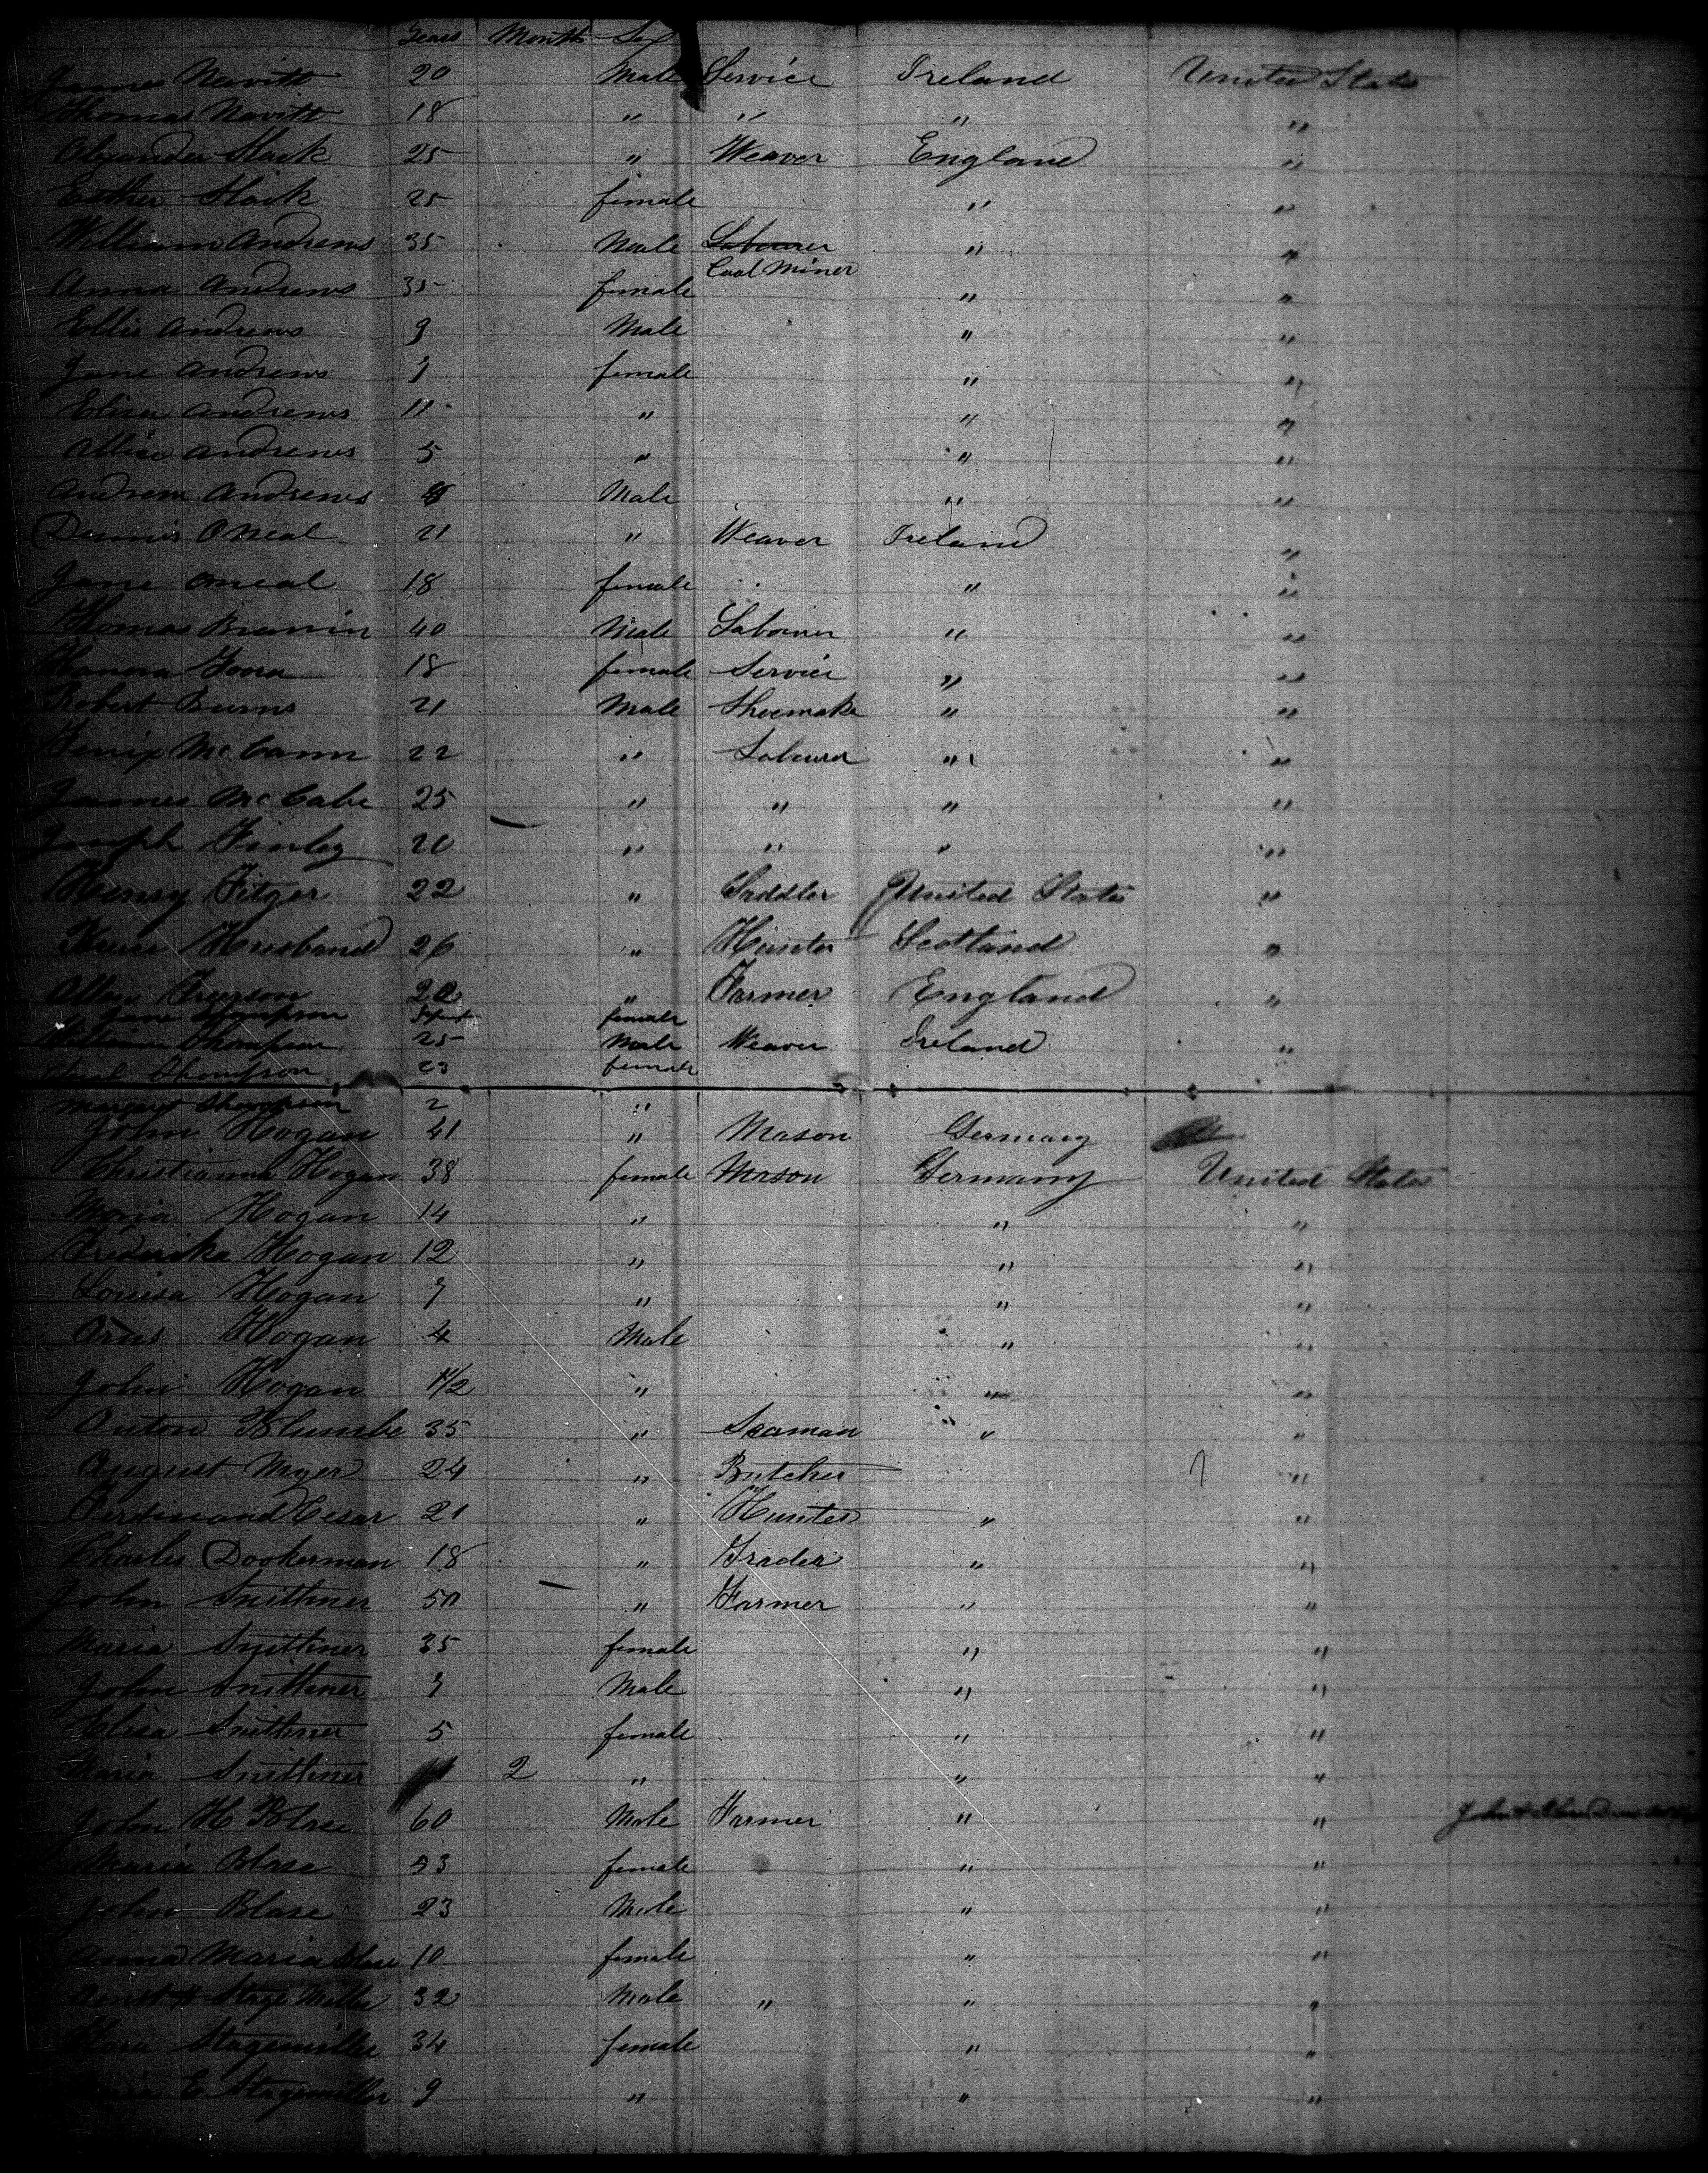 Years Month Sex
James Navitt 20 Male Service Ireland United States
Thomas Navitt 18 " " " "
Alexander Slack 25 " Weaver England "
Esther Slack 25 female " "
William Andrews 35 Male Labourer " "
Coal Miner
Anna Andrews 35 female " "
Ellis Andrews 9 Male " "
Jane Andrews 7 female " "
Eliza Andrews 11 " " "
Allice Andrews 5 " " "
Andrew Andrews Male " "
Dennis O Neal 21 " Weaver Ireland "
Jane Oneal 18 female " "
Thomas Brannin 40 Male Labourer " "
Honora 18 female Service " "
Robert Burns 21 Male Shoemaker " "
McCann 22 " Labourer " "
James McCabe 25 " " " "
Joseph Finley 20 " " " "
Henry Fitzer 22 " Saddler United States "
Husband 26 " Hunter Scotland "
Allen 20 " Farmer England "
Jane Thompson female
William Thompson 25 Male Weaver Ireland "
Thompson 23 female
Margaret Thompson 2 "
John Hogan 41 " Mason Germany
Christianna Hogan 38 female Mason Germany United States
Maria Hogan 14 " " "
Frederika Hogan 12 " " "
Louisa Hogan 7 " " "
Hogan 4 Male " "
John Hogan 1/2 " " "
Anton Blumbe 35 " Seaman " "
August Myer 24 " Butcher "
Ferdinand Cesar 21 " Hunter " "
Charles Dookerman 18 " Trader " "
John Snittiner 50 " Farmer " "
Maria Snittiner 35 female " "
John Snittiner 7 Male " "
Elisa Snittiner 5 female " "
Maria Snittiner 2 " " "
John H Blase 60 Male Farmer " "
Maria Blase 53 female " "
John Blase 23 Male " "
Anna Maria Blase 10 female " "
Stage Miller 32 Male " " "
Stagemiller 34 female " "
E Stagemiller 9 " " "